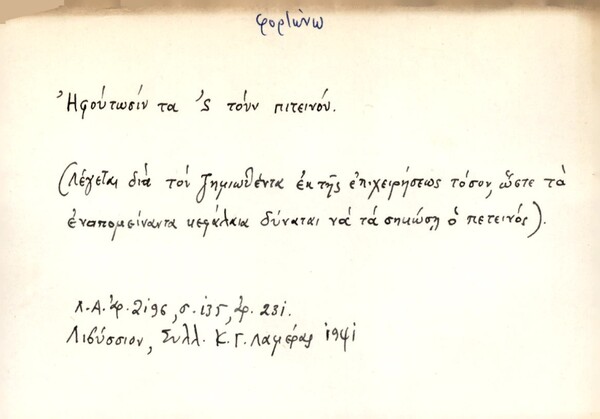 φορτώνω
Ἠφούτωσίν τα 'ς τούν πιτεινόν.
(Λέγεται διά τόν ζημιωθέντα ἐκ τῆς ἐπιχειρήσεως τόσον, ὥστε τά
ἐναπομείναντα κεφάλαια δύναται νά τά σηκώσῃ ὁ πετεινός).
Λ.Α. ἀρ. 2196, σ. 135, ἀρ. 231.
Λιβύσσιον, Συλλ. Κ. Γ. Λαμέρας 1941